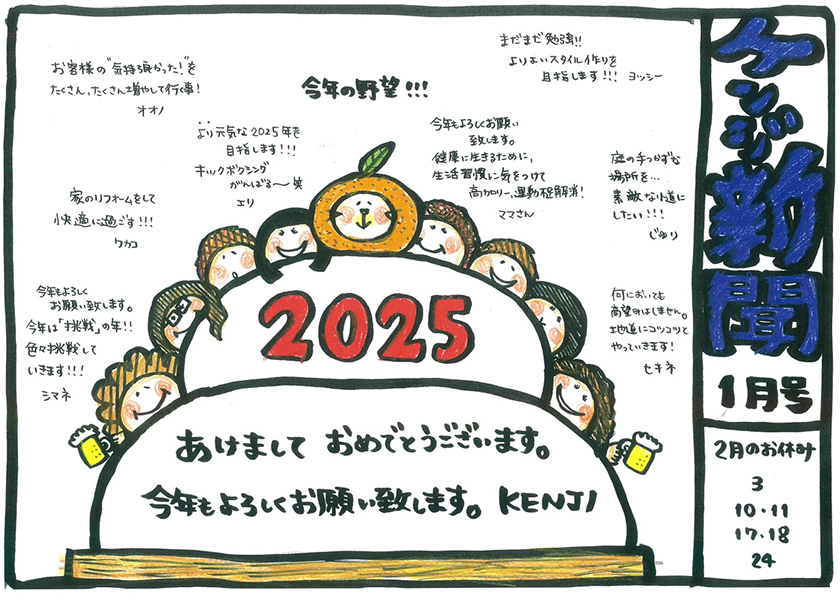 ケンジ新聞
1月号
2月のお休み
3
10・11
17・18
24
今年の野望!!!
まだまだ勉強!!
よりよいスタイル作りを
目指します!!! ヨッシー
お客様の"気持ち良かった!"を
たくさん、たくさん増やして行く事!
オオノ
より元気な2025年を
目指します!!!
キックボクシング
がんばる〜 笑
エリ
今年もよろしくお願い
致します。
健康に生きるために、
生活習慣に気をつけて
高カロリー、運動不足解消!
ママさん
庭の手つかずな
場所を…
素敵な小道に
したい!!!
じゅり
家のリフォームをして
快適に過ごす!!!
ワカコ
今年もよろしく
お願い致します。
今年は「挑戦」の年!!
色々挑戦して
いきます!!!
シマネ
何においても
高望みはしません。
地道にコツコツと
やっていきます!
セキネ
2025
あけまして おめでとうございます。
今年もよろしくお願い致します。 KENJI